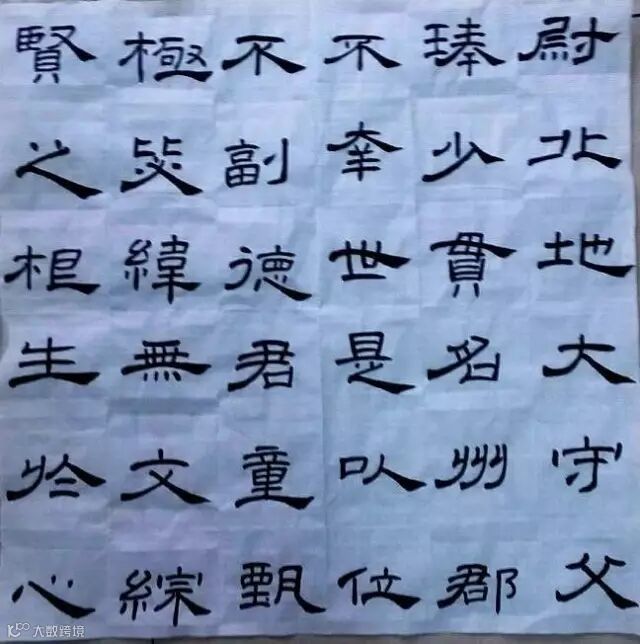 尉北地大守父
琫少貫名州郡
不幸世是以位
不副德君童甄
極毖緯無文綜
賢之根生於心
大数跨境